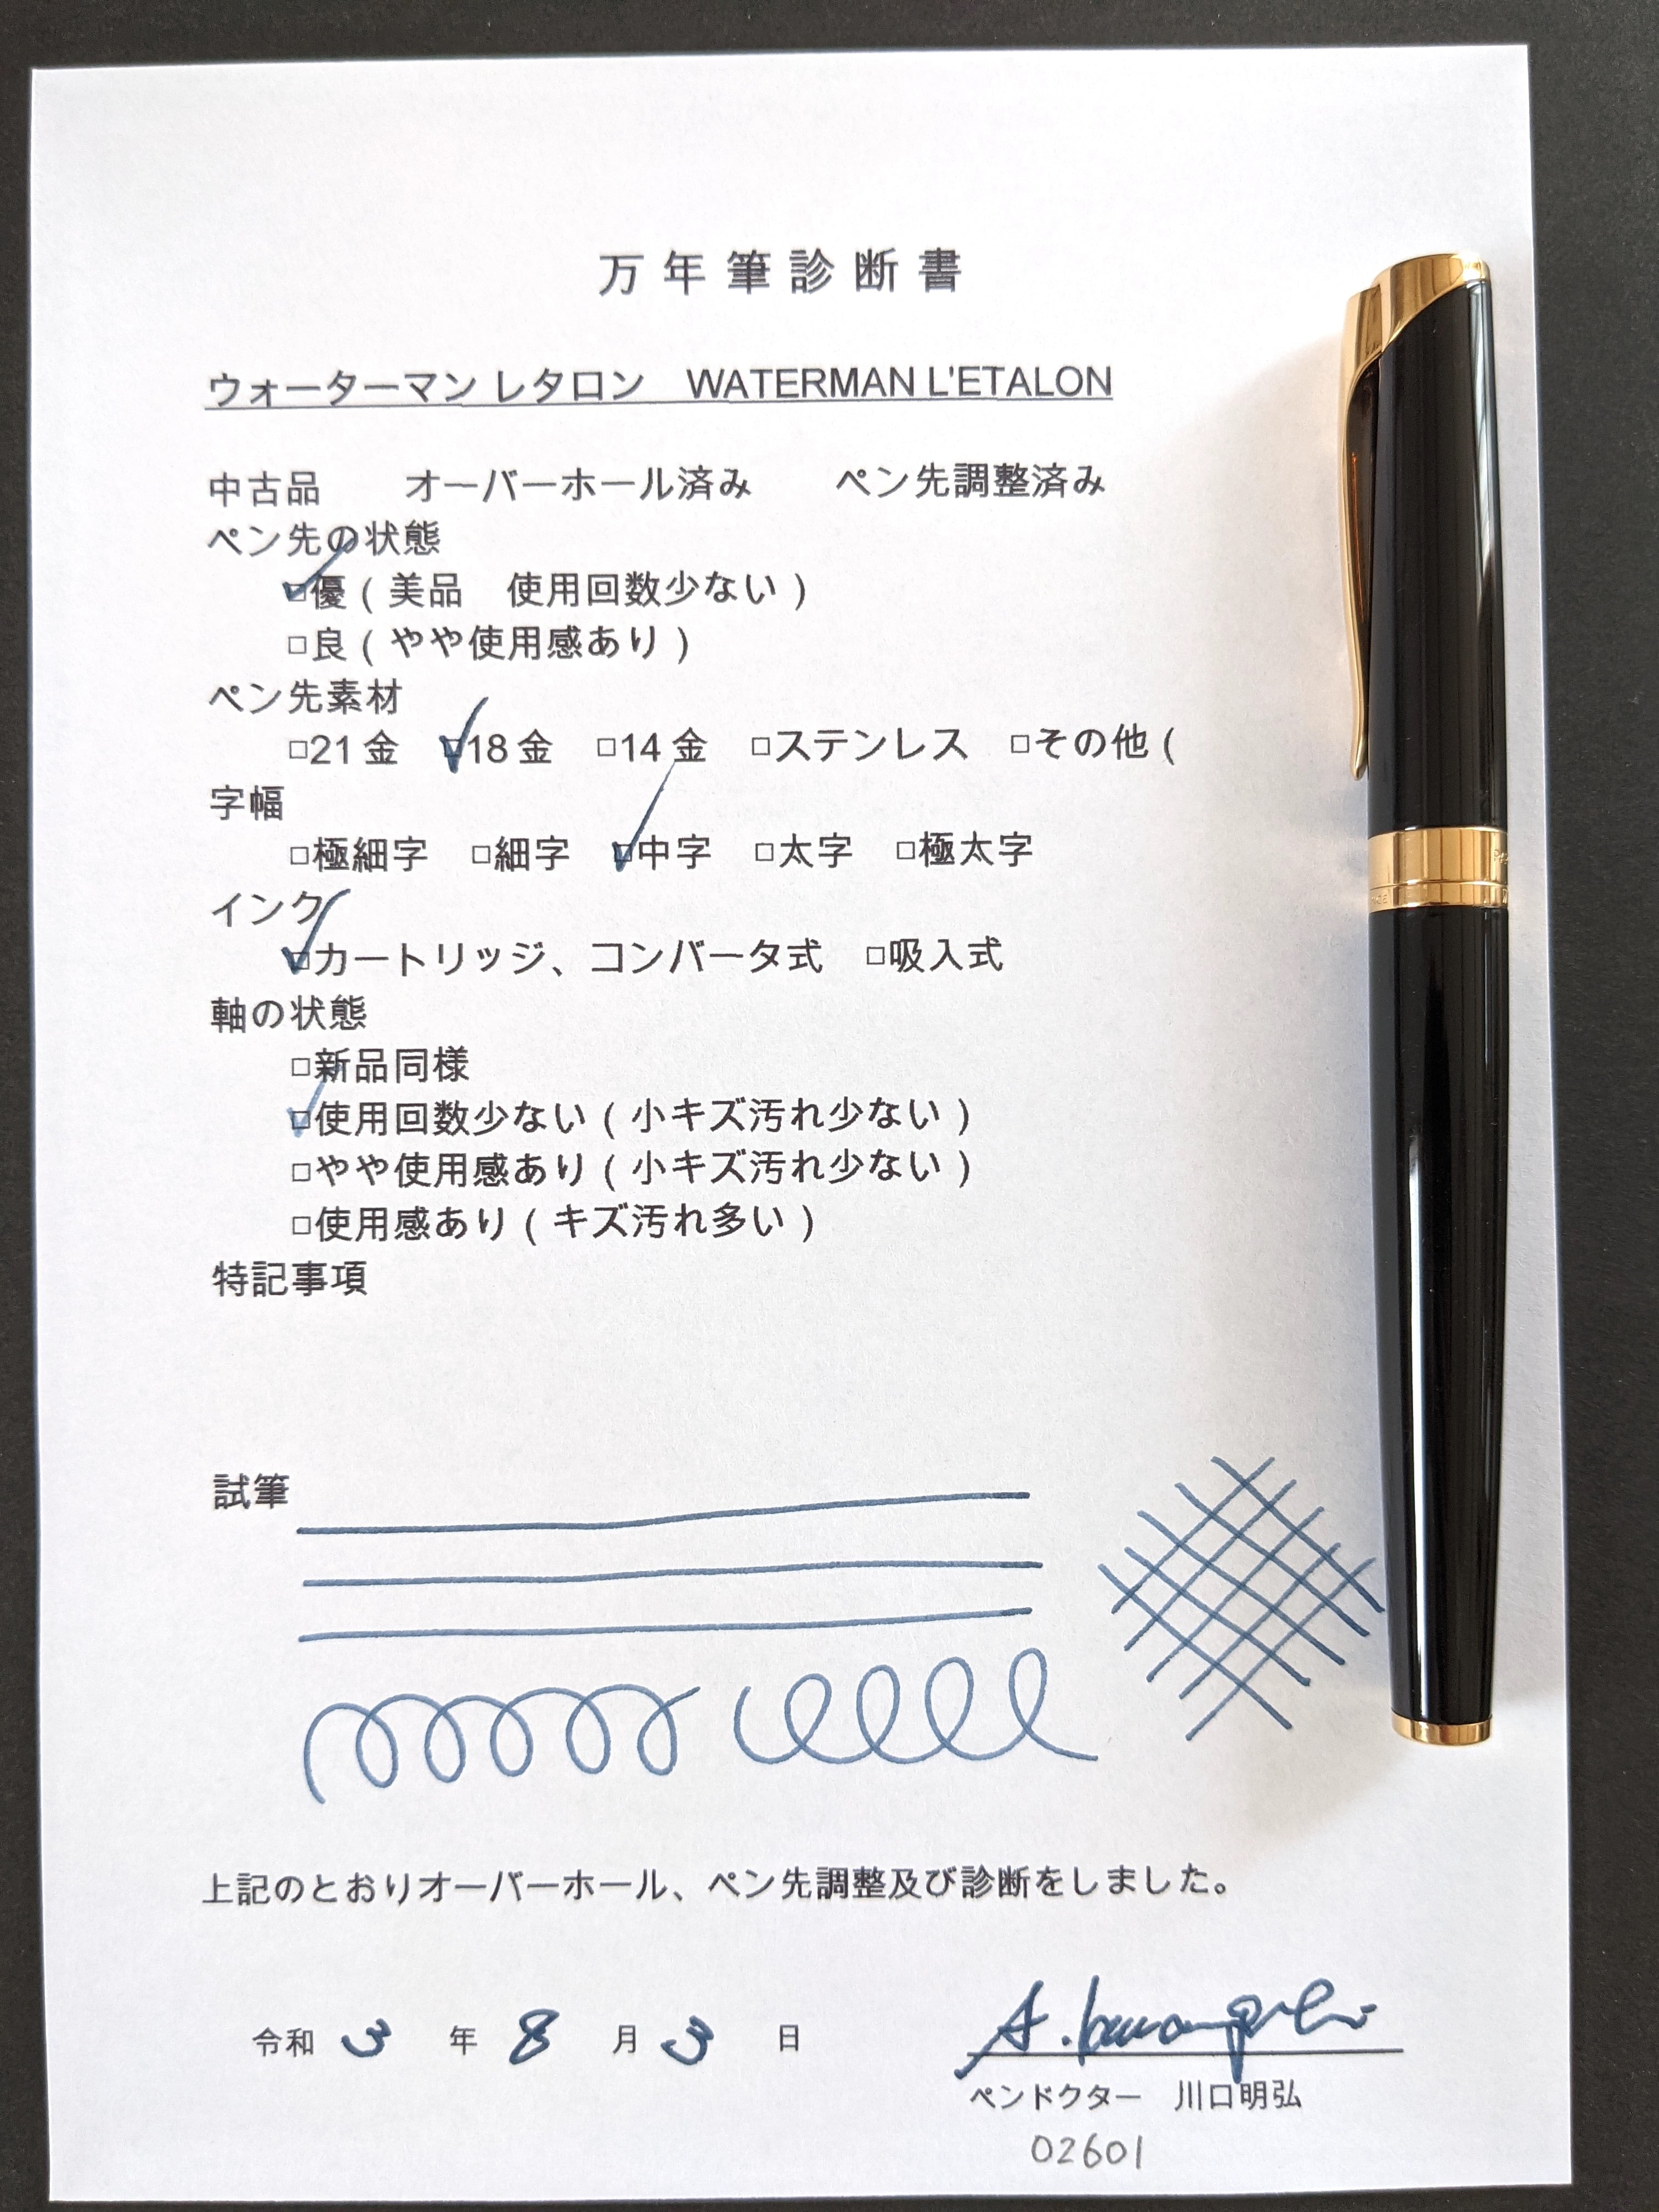 万年筆診断書
ウォーターマン レタロン　WATERMAN L'ETALON
中古品　　オーバーホール済み　　ペン先調整済み
ペン先の状態
□優（美品　使用回数少ない）
□良（やや使用感あり）
ペン先素材
□21金　□18金　□14金　□ステンレス　□その他（
字幅
□極細字　□細字　□中字　□太字　□極太字
インク
□カートリッジ、コンバータ式　□吸入式
軸の状態
□新品同様
□使用回数少ない（小キズ汚れ少ない）
□やや使用感あり（小キズ汚れ少ない）
□使用感あり（キズ汚れ多い）
特記事項
試筆
上記のとおりオーバーホール、ペン先調整及び診断をしました。
令和 3 年 8 月 3 日
ペンドクター　川口明弘
02601